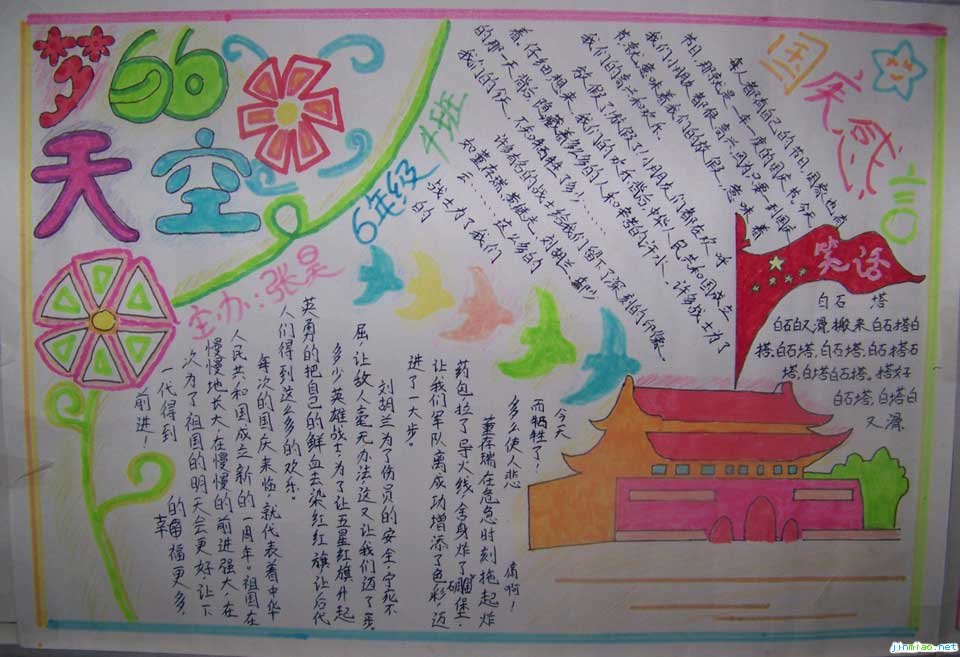 梦的
天空
6年级 牛班
主办:张昊
国庆感言
每人都有自己的节日,国家也有
节日,那就是一年一度的国庆节。今天
我们小朋友都很高兴,因为只要一到国庆
节就意味着我们的放假,意味着
我们的高兴和欢乐。
放假了,放假了,小朋友们都在欢乐
着,仔细想来,我们的欢乐背后,中华人民共和国成立
的那一天背后,隐藏着多少的人和辛苦的汗水,许多战士为了
我们的今天,不知牺牲了多少……
许多的战士给我们留下了深刻的印像。
如董存瑞,黄继光,刘胡兰,邱少
云……这么多的
战士为了我们
的
今天
而牺牲了!
多么使人悲
痛啊!
董存瑞在危急时刻拖起炸
药包拉了导火线,舍身炸了碉堡,
让我们军队离成功增添了色彩,迈
进了一大步。
刘胡兰为了伤员的安全,宁死不
屈,让敌人毫无办法这又让我们迈了一步
多少英雄战士,为了让五星红旗升起
英勇的把自己的鲜血去染红红旗,让后代
人们得到这么多的欢乐
每次的国庆来临,就代表着中华
人民共和国成立新的一周年。祖国在
慢慢地长大,在慢慢的前进强大,在
次为了祖国的明天会更好,让下
一代得到的幸福更多,
前进!
笑话
白石塔
白石白又滑,搬来白石搭白
塔,白石塔,白石塔,白石搭石
塔,白塔白石塔。搭好
白石塔,白塔白
又滑
jinmiao.net